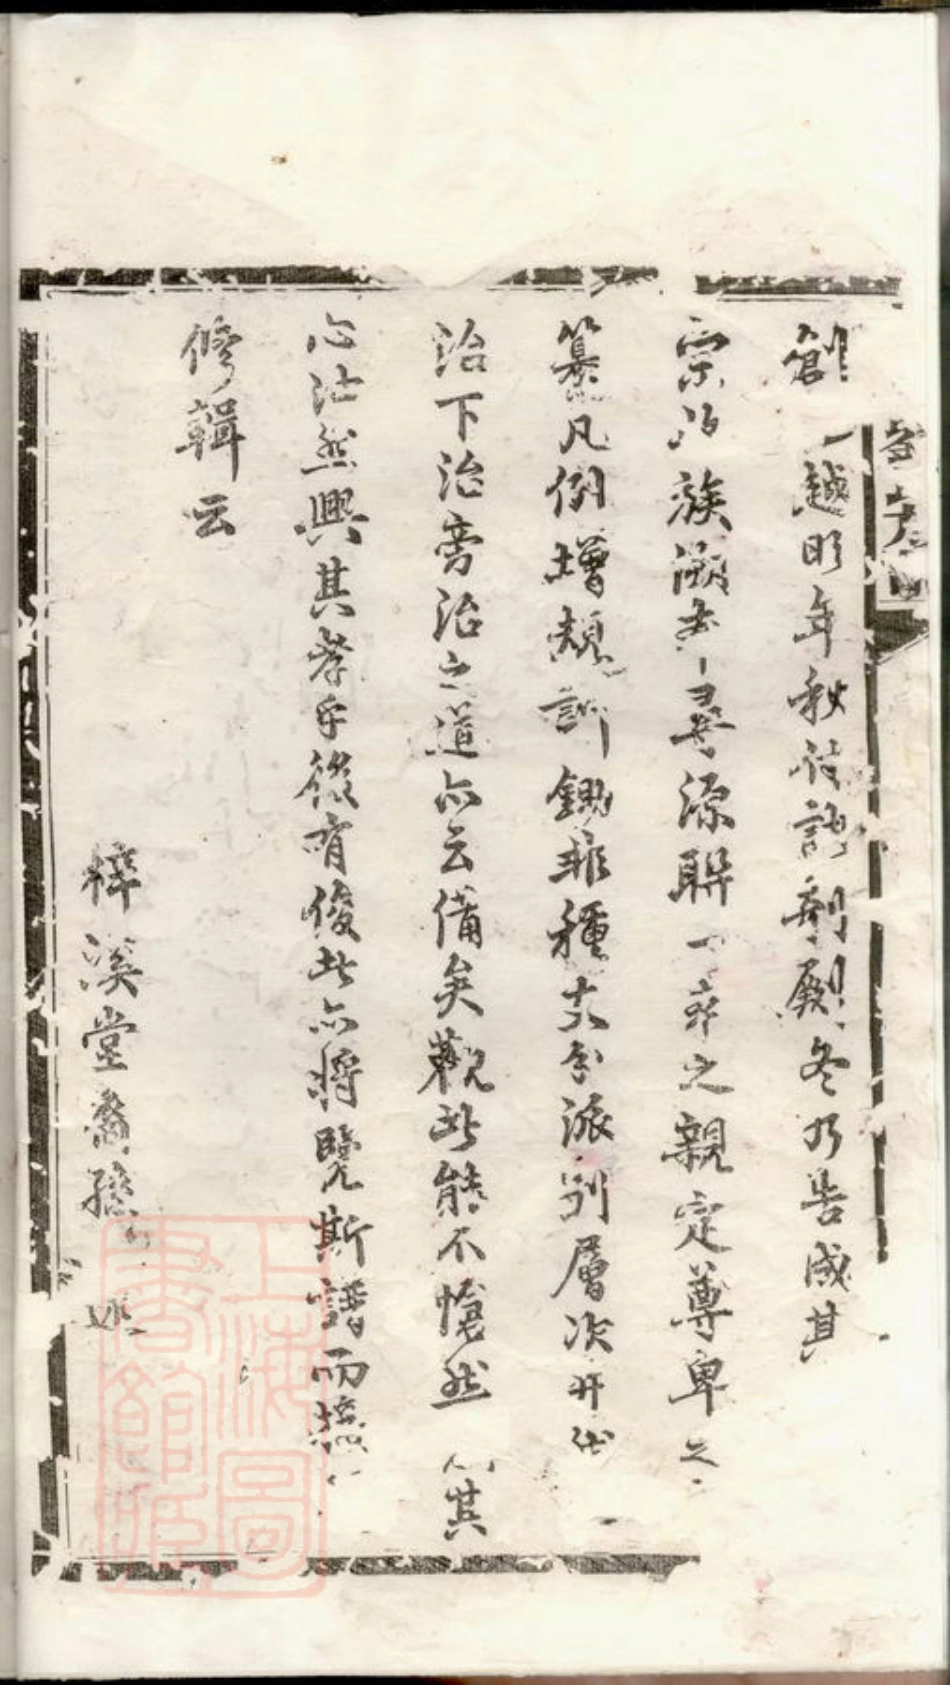 創越明年秋付諸剞劂冬乃告成其
宗以族溯去尋源聯一本之親定尊卑之
纂凡例增類訓鋤非種支分派別層次井然
治下治旁治之道亦云備矣觀此能不愴然其
心沾然興其孝乎後有俊此亦將覽斯譜而
修輯云
梓溪堂裔孫 述
上海圖書館藏